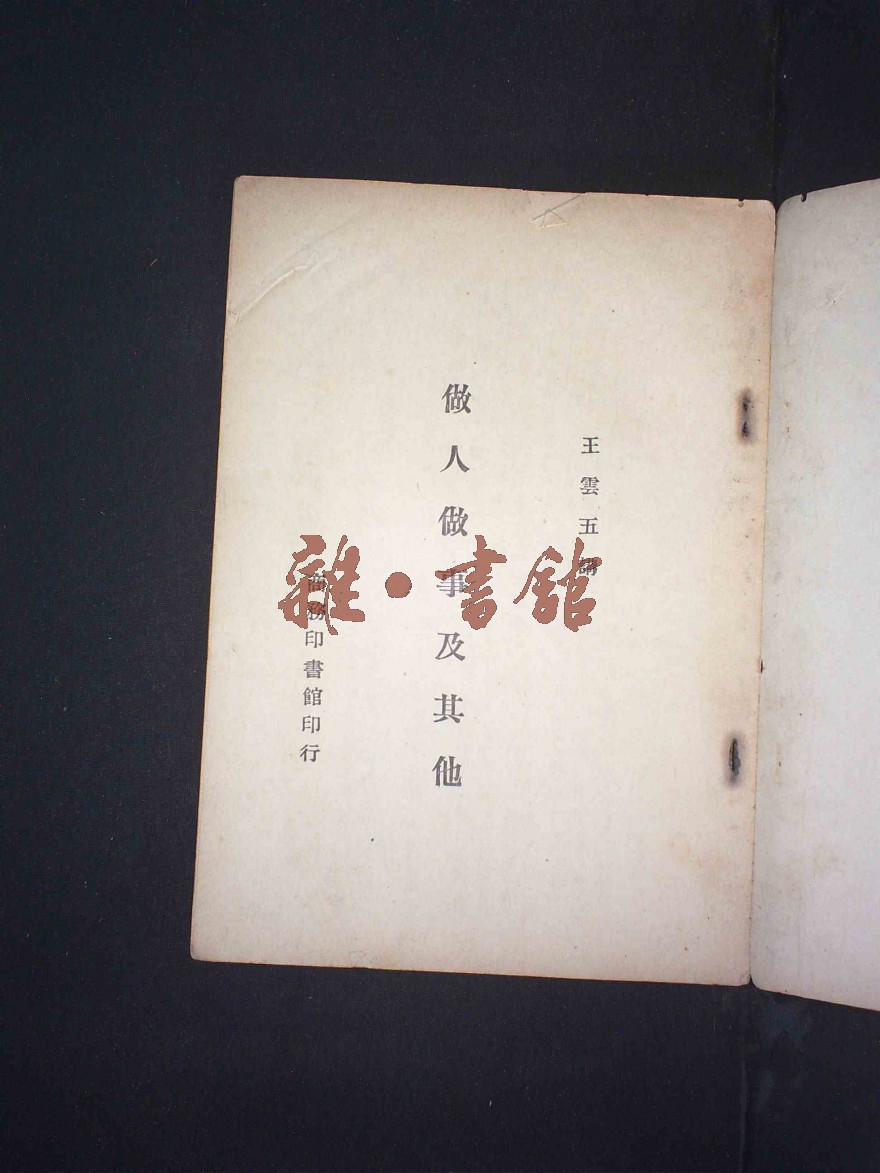 王雲五講
做人做事及其他
商務印書館印行
雜·書館